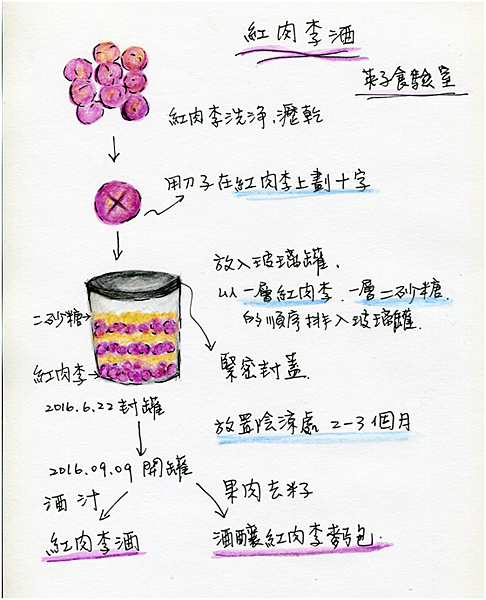 紅肉李酒
英子食驗室
紅肉李洗净、瀝乾
用刀子在紅肉李上劃十字
放入玻璃罐、
以一層紅肉李、一層二砂糖、
的順序排入玻璃罐.
二砂糖
紅肉李
緊密封蓋.
2016.6.22 封罐
放置陰涼處 2-3個月
2016.09.09 開罐
酒汁
果肉去籽
紅肉李酒
酒釀紅肉李麵包.